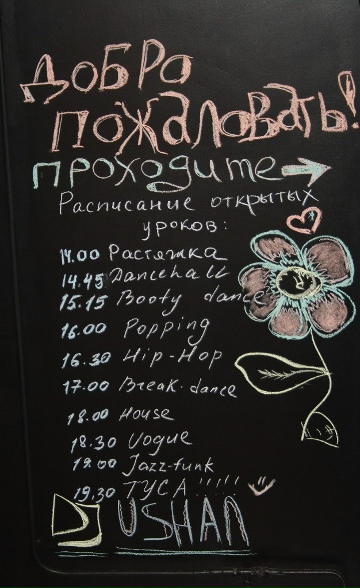 Добро
пожаловать!
проходите →
Расписание открытых
уроков:
14.00 Растяжка
14.45 Dancehall
15.15 Booty dance
16.00 Popping
16.30 Hip-Hop
17.00 Break-dance
18.00 House
18.30 Vogue
19.00 Jazz-funk
19.30 ТУСА !!!!!
USHAN